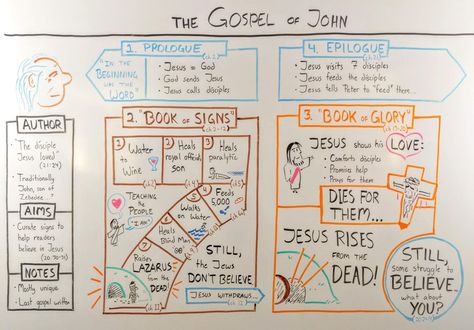 THE GOSPEL OF JOHN
AUTHOR
• The disciple
Jesus loved"
(21:24)
• Traditionally
John, son of
Zebedee ?
AIMS
• Curate signs to
help readers
believe in Jesus
(20:30-31)
NOTES
• Mostly unique
• Last gospel written
"IN THE
BEGINNING
WAS THE
WORD"
1. PROLOGUE
(ch.1)
• Jesus = God
• God sends Jesus
• Jesus calls disciples
2. "BOOK OF SIGNS"
(ch.2-12)
1 Water
to
Wine
2 Heals
royal official's
son
(ch.4)
3 Heals
paralytic
4 Feeds
5,000
5 Walks
on Water
6 Heals
Blind Man
7 Raises
LAZARUS
from the
DEAD!
(ch.11)
TEACHING
PEOPLE
"I AM"
STILL,
the Jews
DON'T BELIEVE.
JESUS WITHDRAWS...
4. EPILOGUE
(ch.21)
• Jesus visits 7 disciples
• Jesus feeds the disciples
• Jesus tells Peter to "feed" them...
3. "BOOK OF GLORY"
(ch.13-20)
JESUS shows his LOVE:
• Comforts disciples
• Promises help
• Prays for them
DIES FOR
THEM...
JESUS RISES
FROM THE
DEAD!
STILL,
some struggle to
BELIEVE.
what about
YOU?